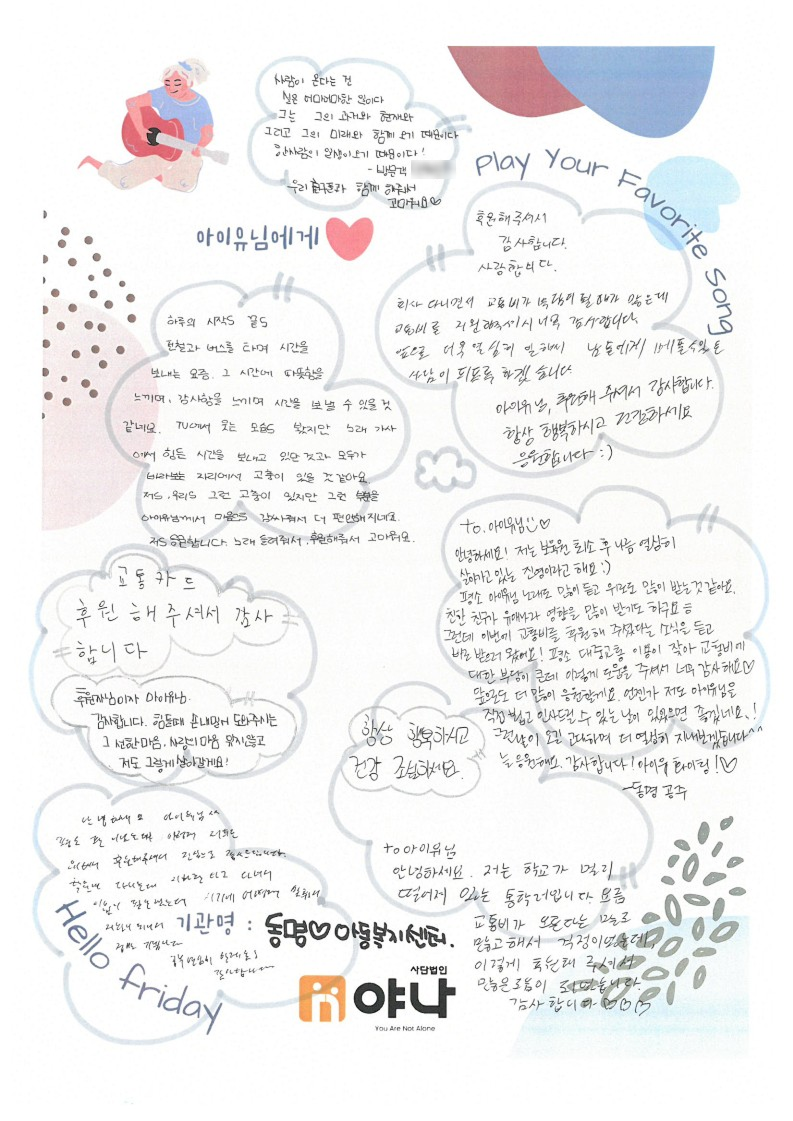 사람이 온다는 건
실은 어마어마한 일이다
그는 그의 과거와 현재와
그리고 그의 미래와 함께 오기 때문이다
한사람의 일생이 오기 때문이다!
- 방문객
우리 친구들과 함께 해줘서
고마워요♡
Play Your Favorite Song
아이유님에게
후원해주셔서
감사합니다.
사랑합니다.
회사 다니면서 교통비가 부담이 될 때가 많은데
교통비를 지원해주셔서 너무 감사합니다.
앞으로 더욱 열심히 일해서 남들에게 베풀 수 있는
사람이 되도록 하겠습니다
아이유님, 후원해 주셔서 감사합니다.
항상 행복하시고 건강하세요
응원합니다 :)
하루의 시작도 끝도
전철과 버스를 타며 시간을
보내는 요즘. 그 시간에 따뜻함을
느끼며, 감사함을 느끼며 시간을 보낼 수 있을 것
같네요. TV에서 웃는 모습도 봤지만 노래 가사
에서 힘든 시간을 보내고 있던 것과 모두가
바라보는 자리에서 고충이 있을 것 같아요
저도, 우리도 그런 고충이 있지만 그런
아이유님께서 마음을 감싸줘서 더 편안해지네요.
저도 응원합니다. 노래 들려줘서, 후원해줘서 고마워요.
to. 아이유님 ♡
안녕하세요! 저는 보육원 퇴소 후 나름 열심히
살아가고 있는 진영이라고 해요 :)
평소 아이유님 노래도 많이 듣고 위로도 많이 받는 것 같아요.
친한 친구가 유애나라 영향을 많이 받기도 하구요 ㅎ
그런데 이번에 교통비를 후원해 주셨다는 소식을 듣고
바로 받으러 왔어요! 평소 대중교통 이용이 잦아 교통비에
대한 부담이 큰데 이렇게 도움을 주셔서 너무 감사해요♡
앞으로도 더 많이 응원할게요. 언젠가 저도 아이유님을
직접 뵙고 인사드릴 수 있는 날이 있었으면 좋겠네요!
그런날이 오길 고대하며 더 열심히 지내보겠습니다^^
늘 응원해요. 감사합니다! 아이유 화이팅!♡
- 동명 공주
교통카드
후원 해주셔서 감사
합니다
후원자님이자 아이유님.
감사합니다. 힘들때 손내밀어 도와주시는
그 선한 마음, 사랑의 마음 잊지않고
저도 그렇게 살아갈게요!
항상 행복하시고
건강 조심하세요.
안녕하세요 아이유님 ^^
to 아이유님
안녕하세요. 저는 학교가 멀리
떨어져 있는 통학러입니다. 요즘
교통비가 오른다는 말로
많고해서 걱정이었는데,
이렇게 후원해 주셔서
많은 도움이 되었습니다.
감사합니다 ♡♡♡
Hello friday
기관명 : 동명♡아동복지센터.
사단법인
야나
You Are Not Alone